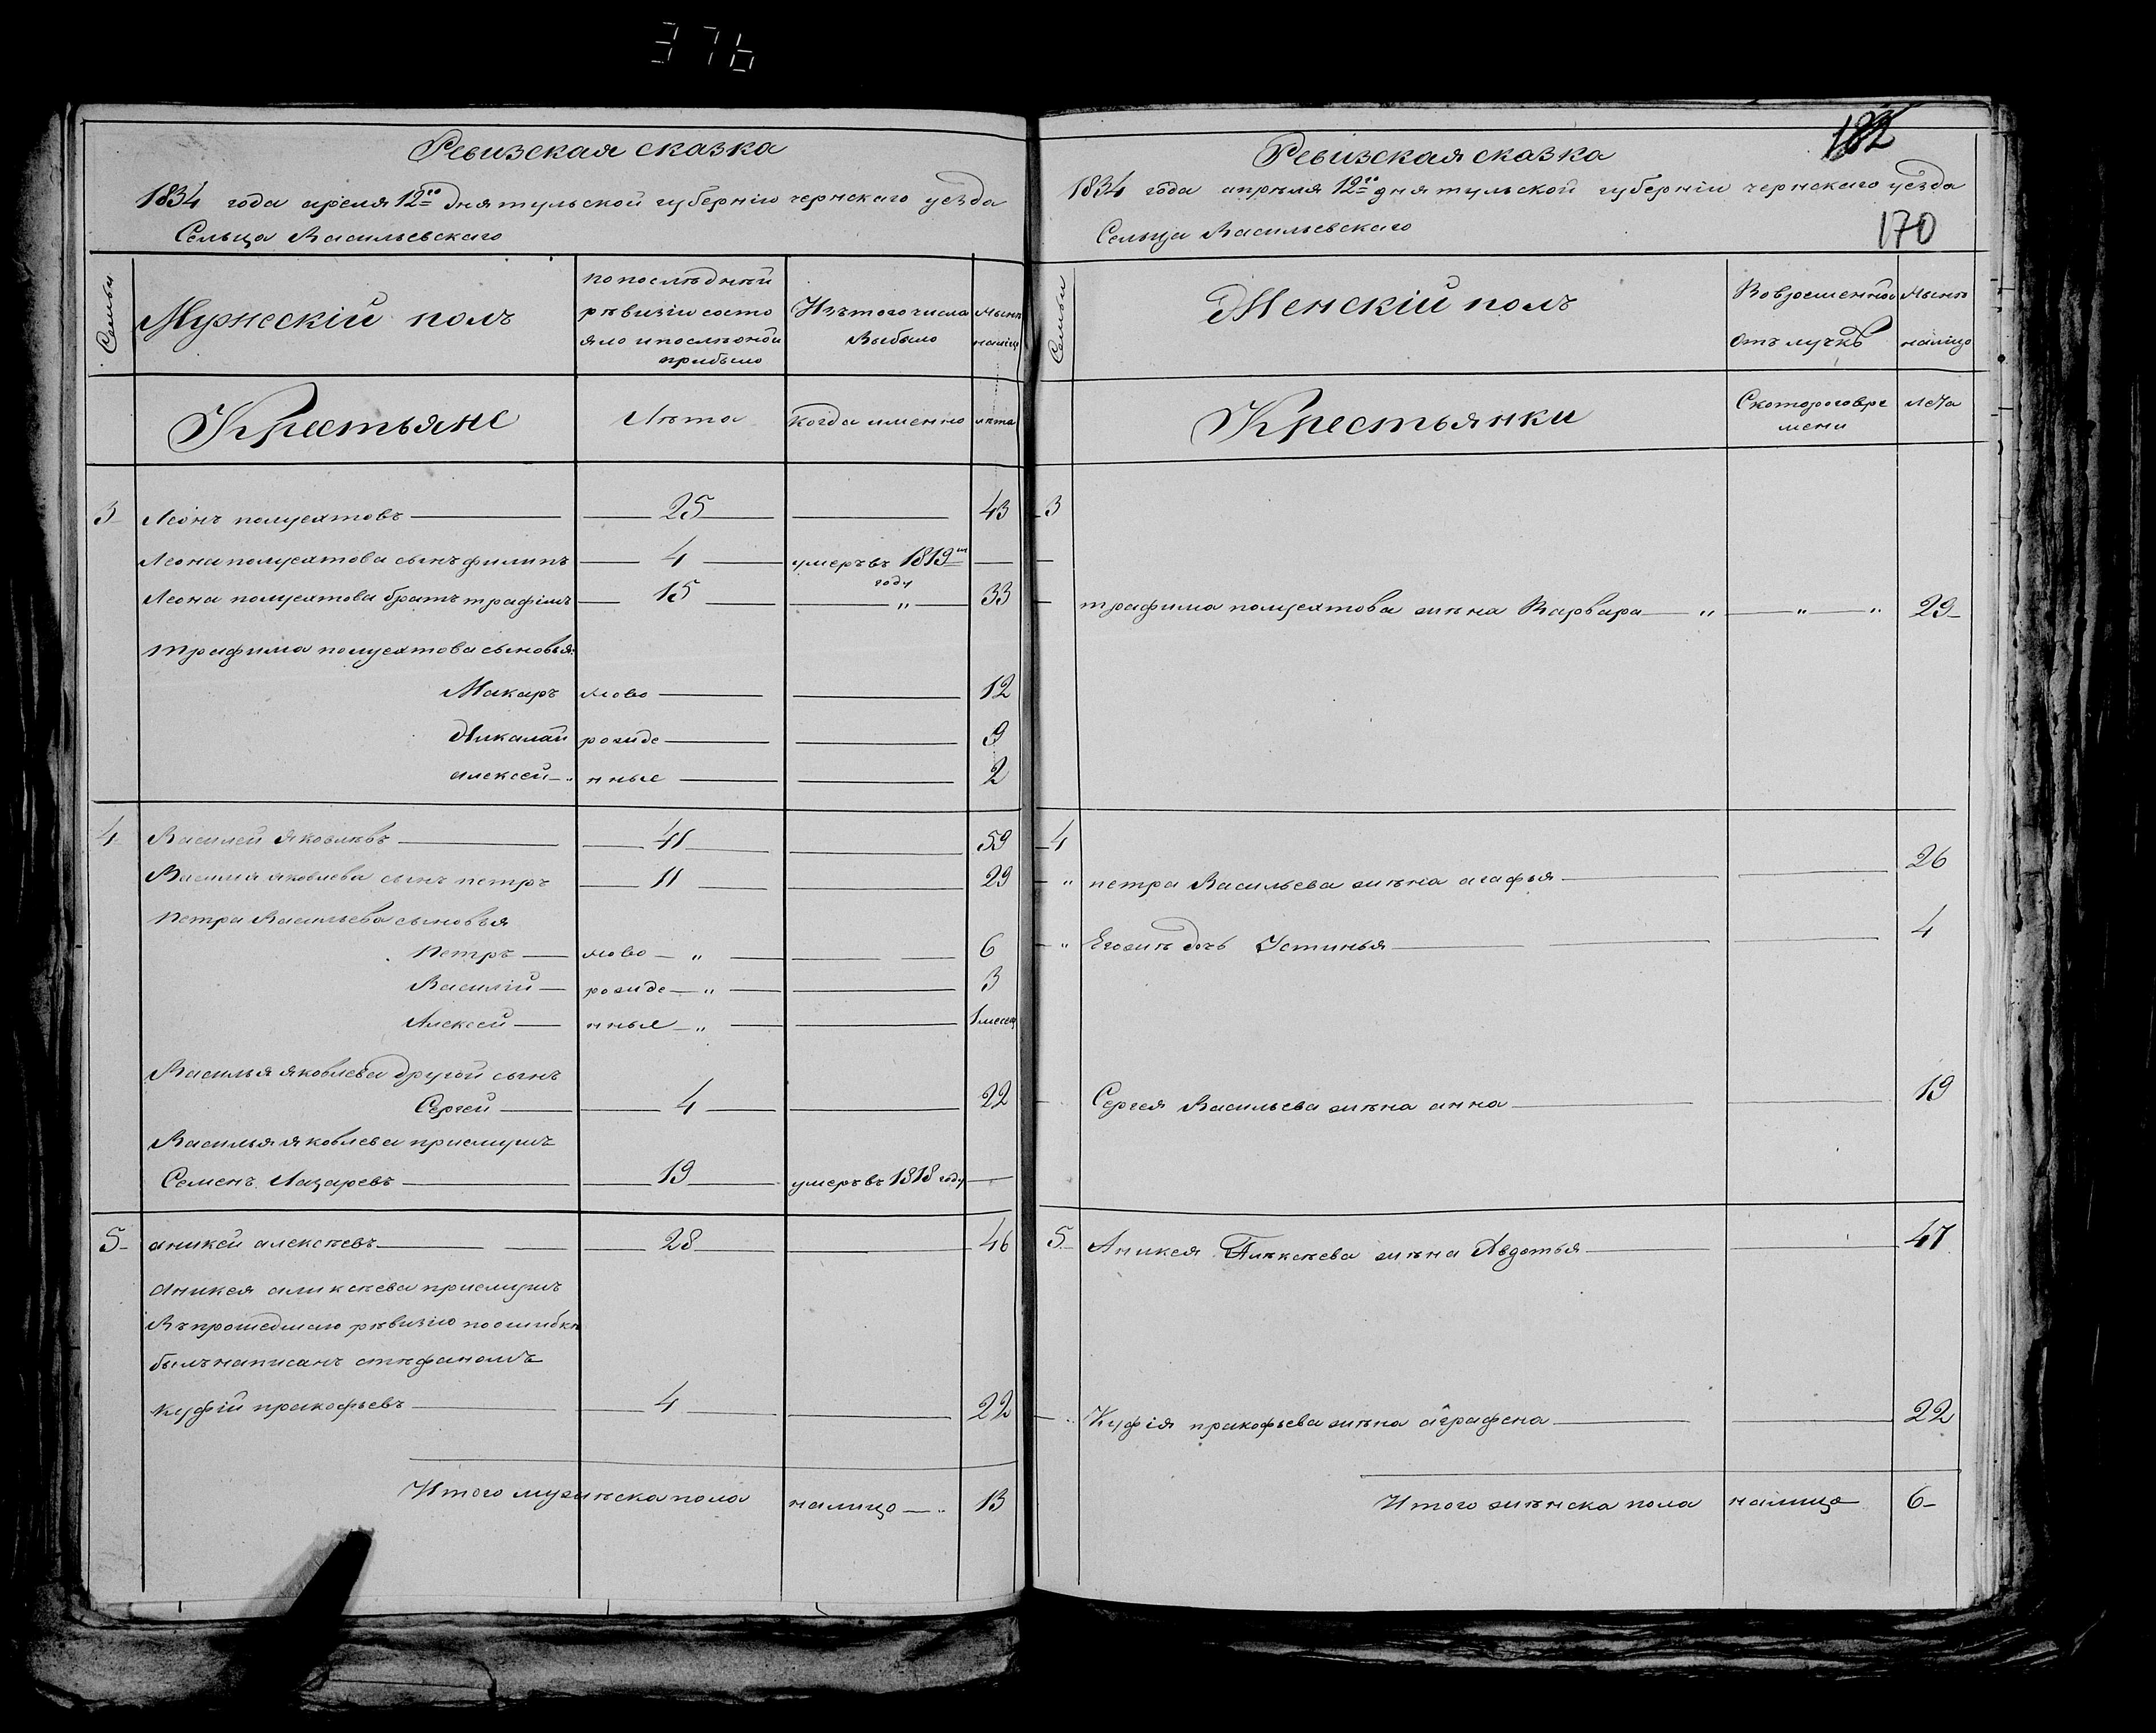 376
Ревизская сказка
1834 года апреля 12го дня тульской губернiю чернскаго уезда
Сельца Васильевскаго
Семьи
Мужескiй полъ
попослѣдней
рѣвизiи состо
яло ипослѣоной
прибыло
Изътогочисла
Выбыло
Нынѣ
налицо
Крестьяне
Лѣта
когда именно
лѣта
3 Леонъ полуехтовъ 25 43
Леона полуехтова сынъ филипъ 4 умеръвъ 1819м
году
Леона полуехтова братъ трафiмъ 15 " 33
трафима полуехтова сыновья:
Макаръ ново 12
Никалай рожде 9
алексей нные 2
4 Василей Яковлѣвъ 41 59
Василия яковлева сынъ петръ 11 29
Петра Васильева сыновья
Петръ ново " 6
Василiй рожде " 3
Алексей нные " 1 месец
Василья яковлева другой сынъ
Сергей 4 22
Василья яковлева приемушъ
Семенъ Лазаревъ 19 умеръвъ 1818 году
5 аникей алексѣевъ 28 46
Аникея аликсѣева приемушъ
Въпрошедшаю рѣвизiю поошибкѣ
былънаписанъ стѣфаномъ
Куфiй пракофьевъ 4 22
Итого мужѣска пола налицо 13
182
Ревизская сказка
1834 года апрѣля 12го дня тульской губернiи чернскаго уѣзда
170
Сельца Васильевскаго
Семьи
Женскiй полъ
Вовременной
отълучкѣ
Нынѣ
налицо
Крестьянки
Скотороговре
мени
лета
3
трафима полуехтова жѣна Варвара " " " 29
4
26
" петра Васильева жѣна агафья
" Егожѣ дочь Устинья 4
Сергея Васильева жѣна анна 19
5 Аникея Алѣксѣева жѣна Авдотья 47
Куфiя пракофьева жѣна аграфена 22
Итого жѣнска пола налицо 6